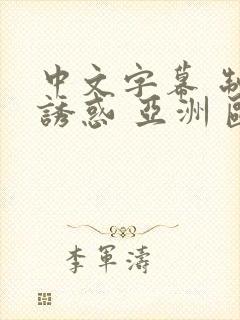 中文字幕 制
誘惑 亞洲
李軍濤